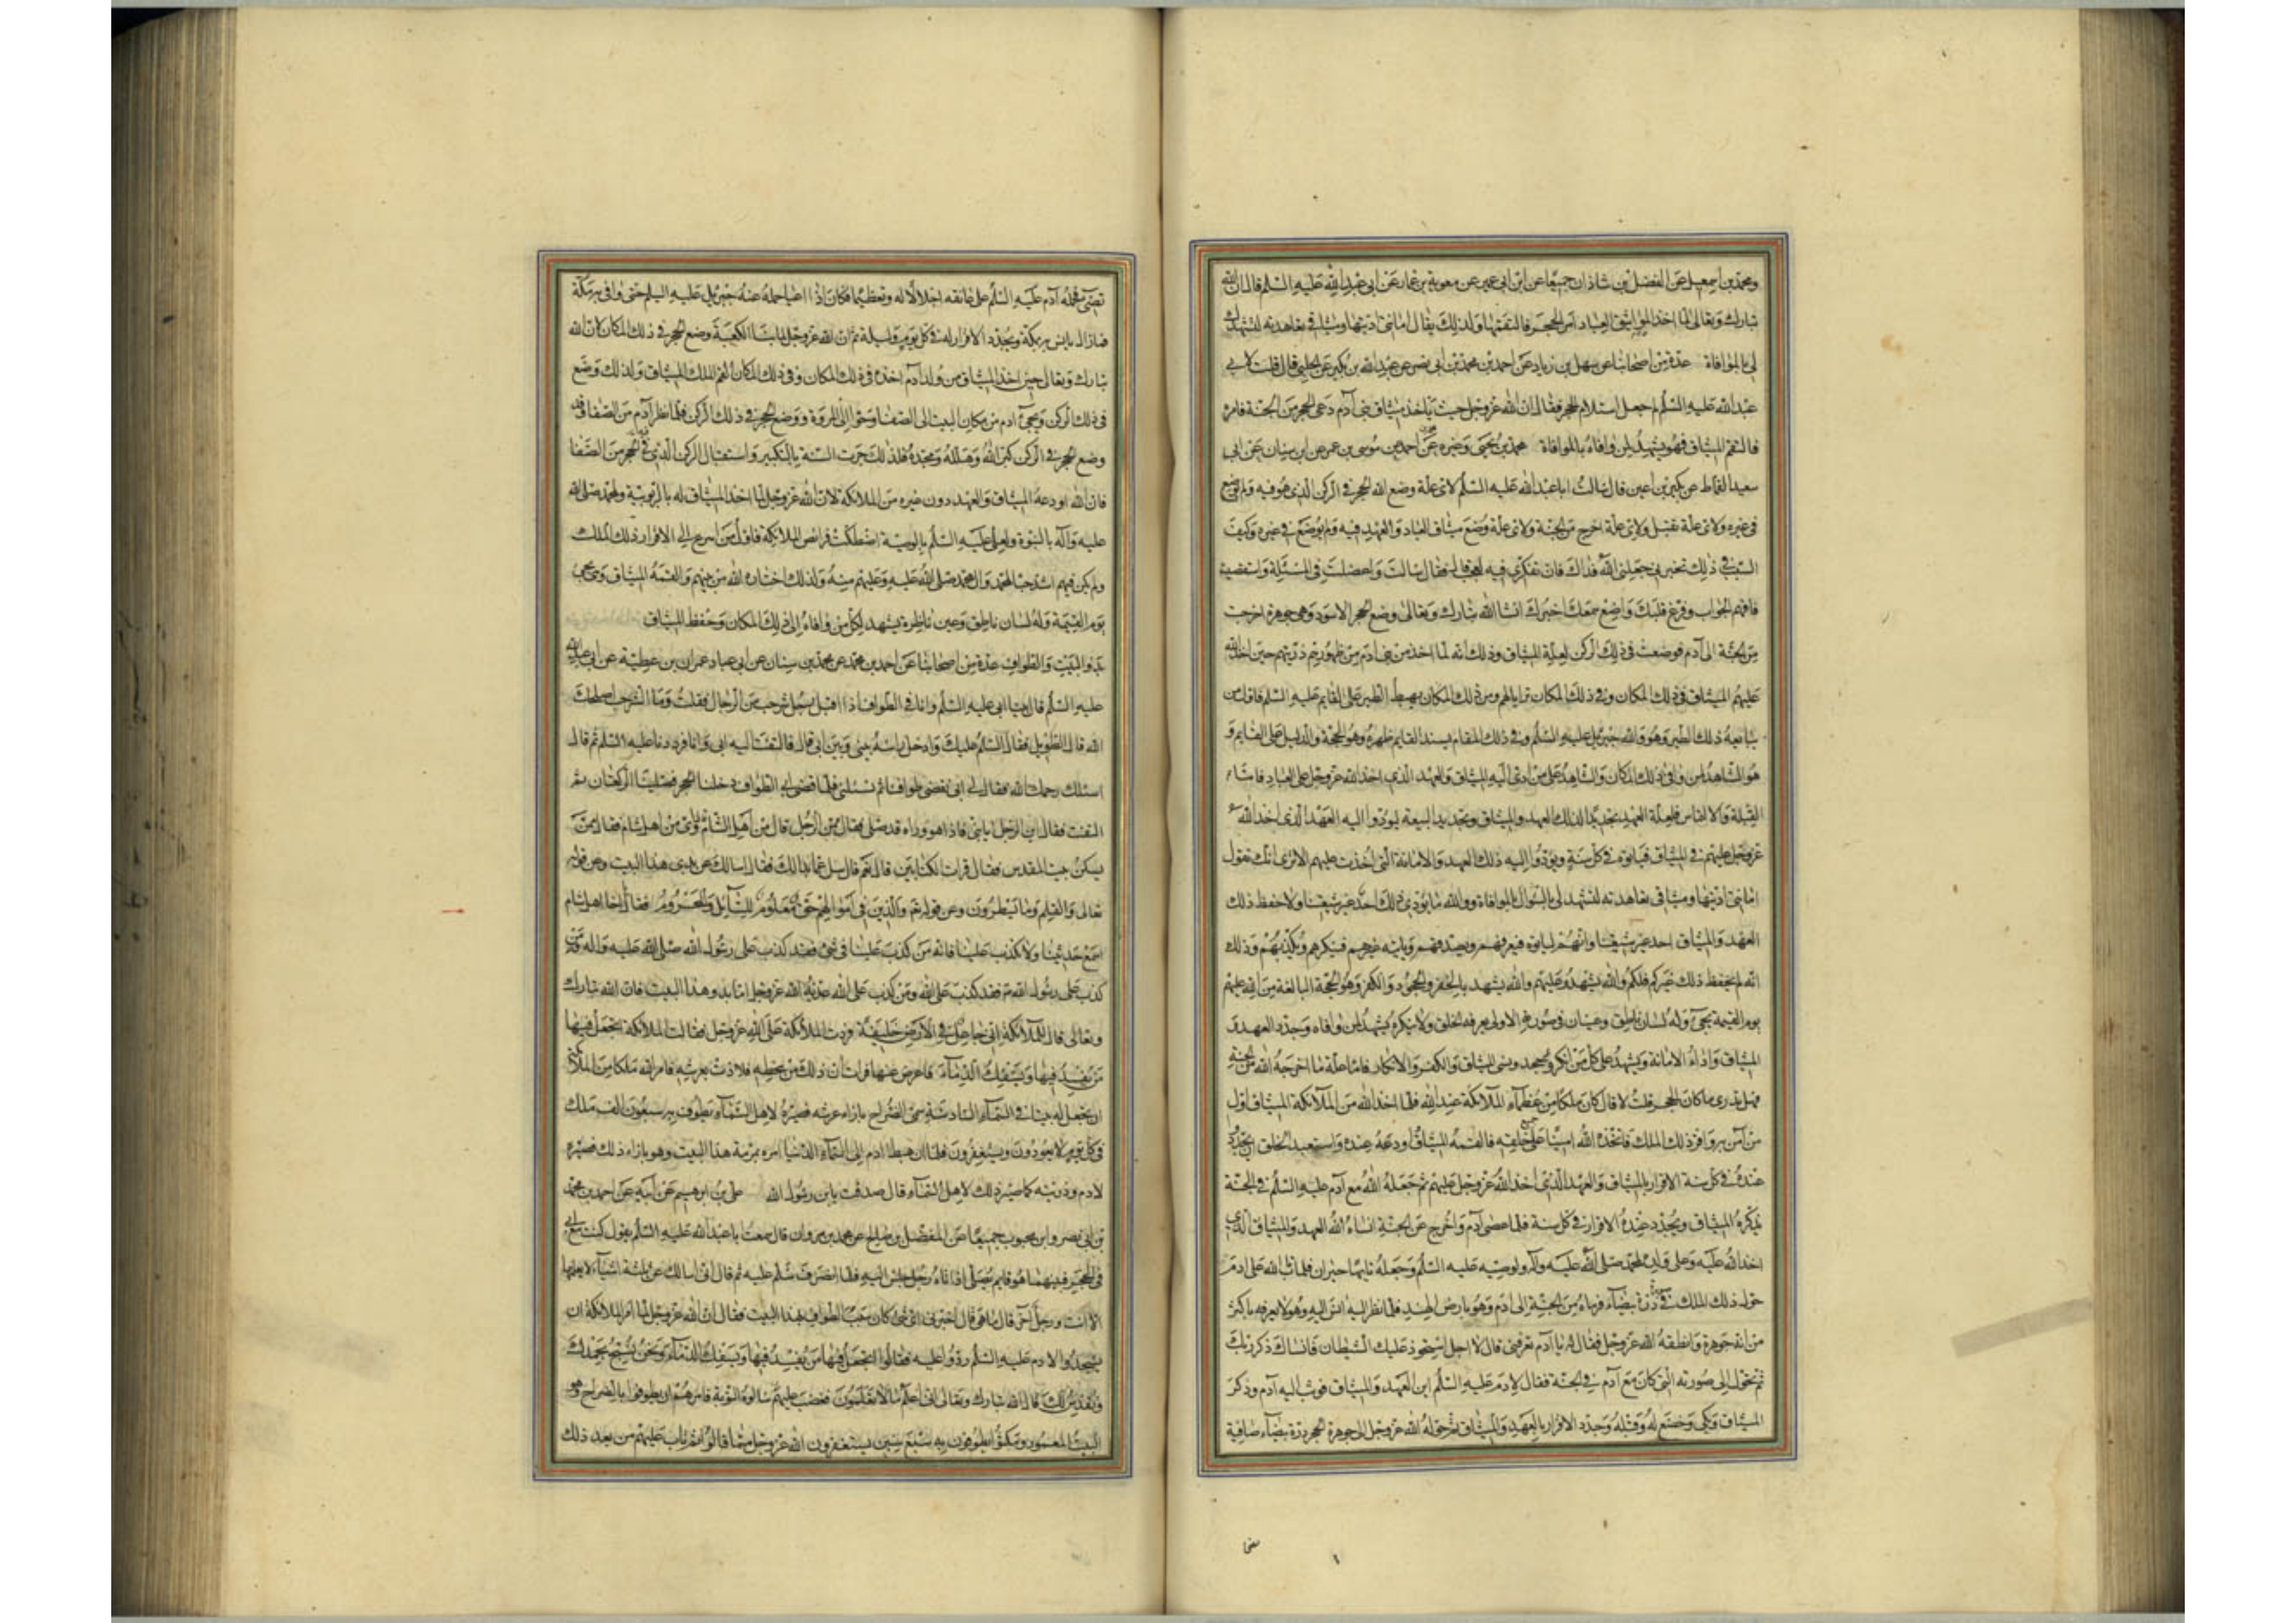 ومحمد بن اسمعيل عن الفضل بن شاذان جميعا عن ابن ابي عمير عن معوية بن عمار عن ابي عبد الله عليه السلم قال ان الله
تبارك وتعالى لما اخذ مواثيق العباد امر الحجر فالتقمها ولذلك يقال امانتي اديتها وميثاقي تعاهدته لتشهد
لي بالموافاة عدة من اصحابنا عن سهل بن زياد عن احمد بن محمد بن ابي نصر عن عبد الله بن بكير عن الحلبي قال قلت لابي
عبد الله عليه السلم لم جعل استلام الحجر فقال ان الله عز وجل حيث اخذ ميثاق بني آدم دعى الحجر من الجنة فامره
فالتقم الميثاق فهو يشهد لمن وافاه بالموافاة محمد بن يحيى وغيره عن احمد عن موسى بن عمر عن ابن سنان عن ابي
سعيد القماط عن بكير بن اعين قال سالت ابا عبد الله عليه السلم لاي علة وضع الله الحجر في الركن الذي هو فيه ولم يوضع
في غيره ولاي علة تقبل ولاي علة اخرج من الجنة ولاي علة وضع ميثاق العباد والعهد فيه ولم يوضع في غيره وكيف
السبب في ذلك تخبرني جعلني الله فداك فان تفكري فيه لعجب قال فقال سالت واعضلت في المسئلة واستقصيت
فافهم الجواب وفرغ قلبك واصغ سمعك اخبرك انشا الله تبارك وتعالى وضع الحجر الاسود وهي جوهرة اخرجت
من الجنة الى آدم فوضعت في ذلك الركن لعلة الميثاق وذلك انه لما اخذ من بني ادم من ظهورهم ذريتهم حين اخذ الله
عليهم الميثاق في ذلك المكان وفي ذلك المكان ترايا لهم ومن ذلك المكان يهبط الطير على القايم عليه السلم فاول من
يبايعه ذلك الطير وهو والله جبرئيل عليه السلم وفي ذلك المقام يسند القايم ظهره وهو الحجة والدليل على القايم و
هو الشاهد لمن وافى ذلك المكان والشاهد على من ادى اليه الميثاق والعهد الذي اخذ الله عز وجل على العباد فاما
القبلة والالتماس فلعلة العهد تجديدا لذلك العهد والميثاق وتجديد البيعة ليؤدوا اليه العهد الذي اخذ الله
عز وجل عليهم في الميثاق فياتوه في كل سنة ويؤدوا اليه ذلك العهد والامانة التي اخذت عليهم الا ترى انك تقول
امانتي اديتها وميثاقي تعاهدته لتشهد لي بالموافاة ووالله ما يؤدي ذلك احد غير شيعتنا ولا حفظ ذلك
العهد والميثاق احد غير شيعتنا وانهم لياتوه فيعرفهم ويصدقهم وياتيه غيرهم فينكرهم ويكذبهم وذلك
انه لم يحفظ ذلك غيركم فلكم والله يشهد وعليهم والله يشهد بالخفر والجحود والكفر وهو الحجة البالغة من الله عليهم
يوم القيمة يجيء وله لسان ناطق وعينان في صورته الاولى يعرفه الخلق ولا ينكره يشهد لمن وافاه وجدد العهد و
الميثاق واداء الامانة ويشهد على كل من انكر وجحد ونسي الميثاق والكفر والانكار فاما علة ما اخرجه الله من الجنة
فهل تدري ما كان الحجر قلت لا قال كان ملكا من عظماء الملائكة عند الله فلما اخذ الله من الملائكة الميثاق اول
من آمن به واقر ذلك الملك فاتخذه الله امينا على جميع خلقه فالقمه الميثاق واودعه عنده واستعبد الخلق ان يجددوا
عنده في كل سنة الاقرار بالميثاق والعهد الذي اخذ الله عز وجل عليهم ثم جعله الله مع آدم عليه السلم في الجنة
يذكره الميثاق ويجدد عنده الاقرار في كل سنة فلما عصى آدم واخرج عن الجنة انساه الله العهد والميثاق الذي
اخذ الله عليه وعلى ولده لمحمد صلى الله عليه وآله ولوصيه عليه السلم وجعله تايها حيران فلما تاب الله على ادم
حول ذلك الملك في صورة درة بيضاء فرماه من الجنة الى ادم وهو بارض الهند فلما نظر اليه انس اليه وهو لا يعرفه باكثر
من انه جوهرة وانطقه الله عز وجل فقال له يا آدم تعرفني قال لا اجل استحوذ عليك الشيطان فانساك ذكر ربك
ثم تحول الى صورته التي كان مع آدم في الجنة فقال لادم عليه السلم اين العهد والميثاق فوثب اليه آدم وذكر
الميثاق وبكى وخضع له وقبله وجدد الاقرار بالعهد والميثاق ثم حوله الله عز وجل الى جوهرة الحجر درة بيضاء صافية
تضيء فحمله آدم عليه السلم على عاتقه اجلالا له وتعظيما فكان اذا اعيا حمله عنه جبرئيل عليه السلم حتى وافى به مكة
فما زال يانس به بمكة ويجدد الاقرار له في كل يوم وليلة ثم ان الله عز وجل لما بنا الكعبة وضع الحجر في ذلك المكان لان الله
تبارك وتعالى حين اخذ الميثاق من ولد آدم اخذه في ذلك المكان وفي ذلك المكان القم الملك الميثاق ولذلك وضع
في ذلك الركن ونحى آدم من مكان البيت الى الصفا وحوا الى المروة ووضع الحجر في ذلك الركن فلما نظر آدم من الصفا وقد
وضع الحجر في الركن كبر الله وهلله ومجده فلذلك جرت السنة بالتكبير واستقبال الركن الذي فيه الحجر من الصفا
فان الله اودعه الميثاق والعهد دون غيره من الملائكة لان الله عز وجل لما اخذ الميثاق له بالربوبية ولمحمد صلى الله
عليه وآله بالنبوة ولعلي عليه السلم بالوصية اصطكت فرائص الملائكة فاول من اسرع الى الاقرار ذلك الملك
ولم يكن فيهم اشد حبا لمحمد وال محمد صلى الله عليه وعليهم منه ولذلك اختاره الله من بينهم والقمه الميثاق وهو يجيء
يوم القيمة وله لسان ناطق وعين ناظرة يشهد لكل من وافاه الى ذلك المكان وحفظ الميثاق
بدو البيت والطواف عدة من اصحابنا عن احمد بن محمد عن محمد بن سنان عن ابي عباد عمران بن عطية عن ابي عبد الله
عليه السلم قال بينا ابي عليه السلم وانا في الطواف اذا اقبل رجل شرجب من الرجال فقلت وما الشرجب اصلحك
الله قال الطويل فقال السلم عليك وادخل راسه بيني وبين ابي قال فالتفت اليه ابي وانا فرددنا عليه السلم ثم قال
اسئلك رحمك الله فقال له ابي نقضي طوافنا ثم تسئلني فلما قضى ابي الطواف دخلنا الحجر فصلينا الركعتان ثم
التفت فقال اين الرجل يا بني فاذا هو وراه قد صلى فقال ممن الرجل قال من اهل الشام قال ومن اي اهل الشام فقال ممن
يسكن بيت المقدس فقال قرات الكتابين قال نعم قال سل عما بدا لك فقال اسالك عن بدو هذا البيت وعن قوله
تعالى والقلم وما يسطرون وعن قوله تم والذين في اموالهم حق معلوم للسائل والمحروم فقال يا اخا اهل الشام
اسمع حديثنا ولا تكذب علينا فانه من كذب علينا في شيء فقد كذب على رسول الله صلى الله عليه واله ومن
كذب على رسول الله ص فقد كذب على الله ومن كذب على الله عذبه الله عز وجل اما بدو هذا البيت فان الله تبارك
وتعالى قال للملائكة اني جاعل في الارض خليفة فردت الملائكة على الله عز وجل فقالت الملائكة اتجعل فيها
من يفسد فيها ويسفك الدماء فاعرض عنها فرات ان ذلك من سخطه فلاذت بعرشه فامر الله ملكا من الملائكة
ان يجعل له بيتا في السماء السادسة يسمى الضراح بازاء عرشه فصيره لاهل السماء يطوف به سبعون الف ملك
في كل يوم لا يعودون ويستغفرون فلما ان هبط ادم الى السماء الدنيا امره بمرمة هذا البيت وهو بازاء ذلك فصيره
لادم وذريته كما صير ذلك لاهل السماء قال صدقت يا بن رسول الله علي بن ابرهيم عن ابيه عن احمد بن محمد
بن ابي نصر وابن محبوب جميعا عن المفضل بن صالح عن محمد بن مروان قال سمعت ابا عبد الله عليه السلم يقول كنت مع ابي
في الحجر فبينما هو قايم يصلي اذ اتاه رجل فجلس اليه فلما انصرف سلم عليه ثم قال اني اسالك عن ثلثة اشياء لا يعلمها
الا انت ورجل آخر قال ما هي قال اخبرني اي شيء كان سبب الطواف بهذا البيت فقال ان الله عز وجل لما امر الملائكة ان
يسجدوا لادم عليه السلم ردوا عليه فقالوا اتجعل فيها من يفسد فيها ويسفك الدماء ونحن نسبح بحمدك
ونقدس لك قال الله تبارك وتعالى اني اعلم ما لا تعلمون فغضب عليهم ثم سالوه التوبة فامرهم ان يطوفوا بالضراح وهو
البيت المعمور ومكثوا يطوفون به سبع سنين يستغفرون الله عز وجل مما قالوا ثم تاب عليهم من بعد ذلك